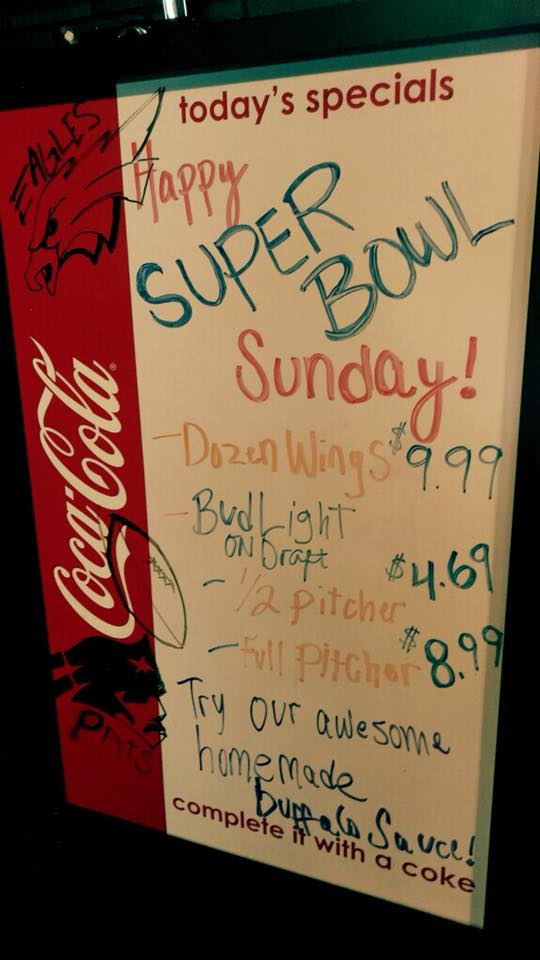 today's specials
EAGLES
Happy
SUPER
BOWL
Sunday!
Coca-Cola®
- Dozen Wings $9.99
- Bud Light
ON Draft
- 1/2 Pitcher $4.69
- Full Pitcher $8.99
PATS
Try our awesome
homemade
buffalo Sauce!
complete it with a coke